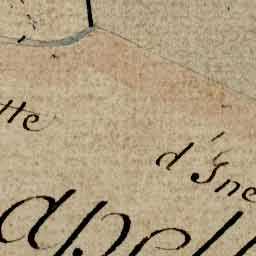 tte
d'Ine
apell